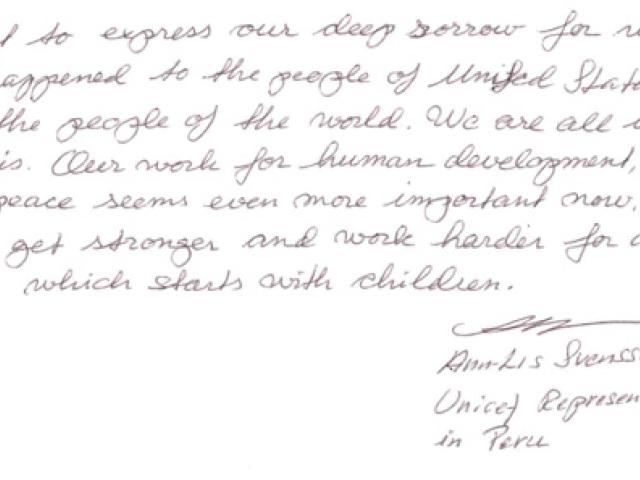 to express our deep sorrow for
appened to the people of United State
the people of the world. We are all
is. Our work for human development,
peace seems even more important now.
get stronger and work harder for a
which starts with children.
Ann-Lis Svenss
Unicef Represen
in Peru